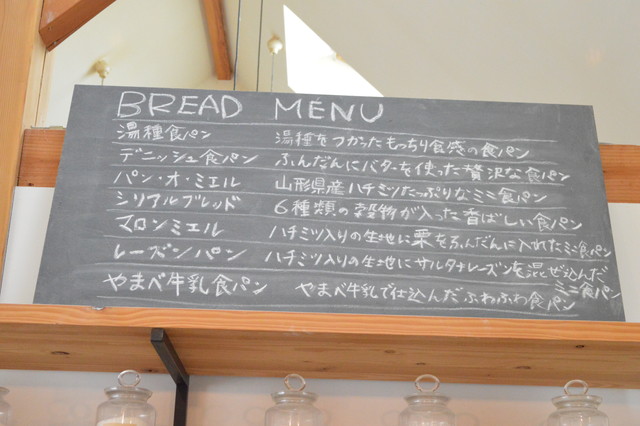 BREAD MENU
湯種食パン 湯種をつかったもっちり食感の食パン
デニッシュ食パン ふんだんにバターを使った贅沢な食パン
パン・オ・ミエル 山形県産ハチミツたっぷりなミニ食パン
シリアルブレッド 6種類の穀物が入った香ばしい食パン
マロンミエル ハチミツ入りの生地に栗をふんだんに入れたミニ食パン
レーズンパン ハチミツ入りの生地にサルタナレーズンを混ぜ込んだ
ミニ食パン
やまべ牛乳食パン やまべ牛乳で仕込んだふわふわ食パン